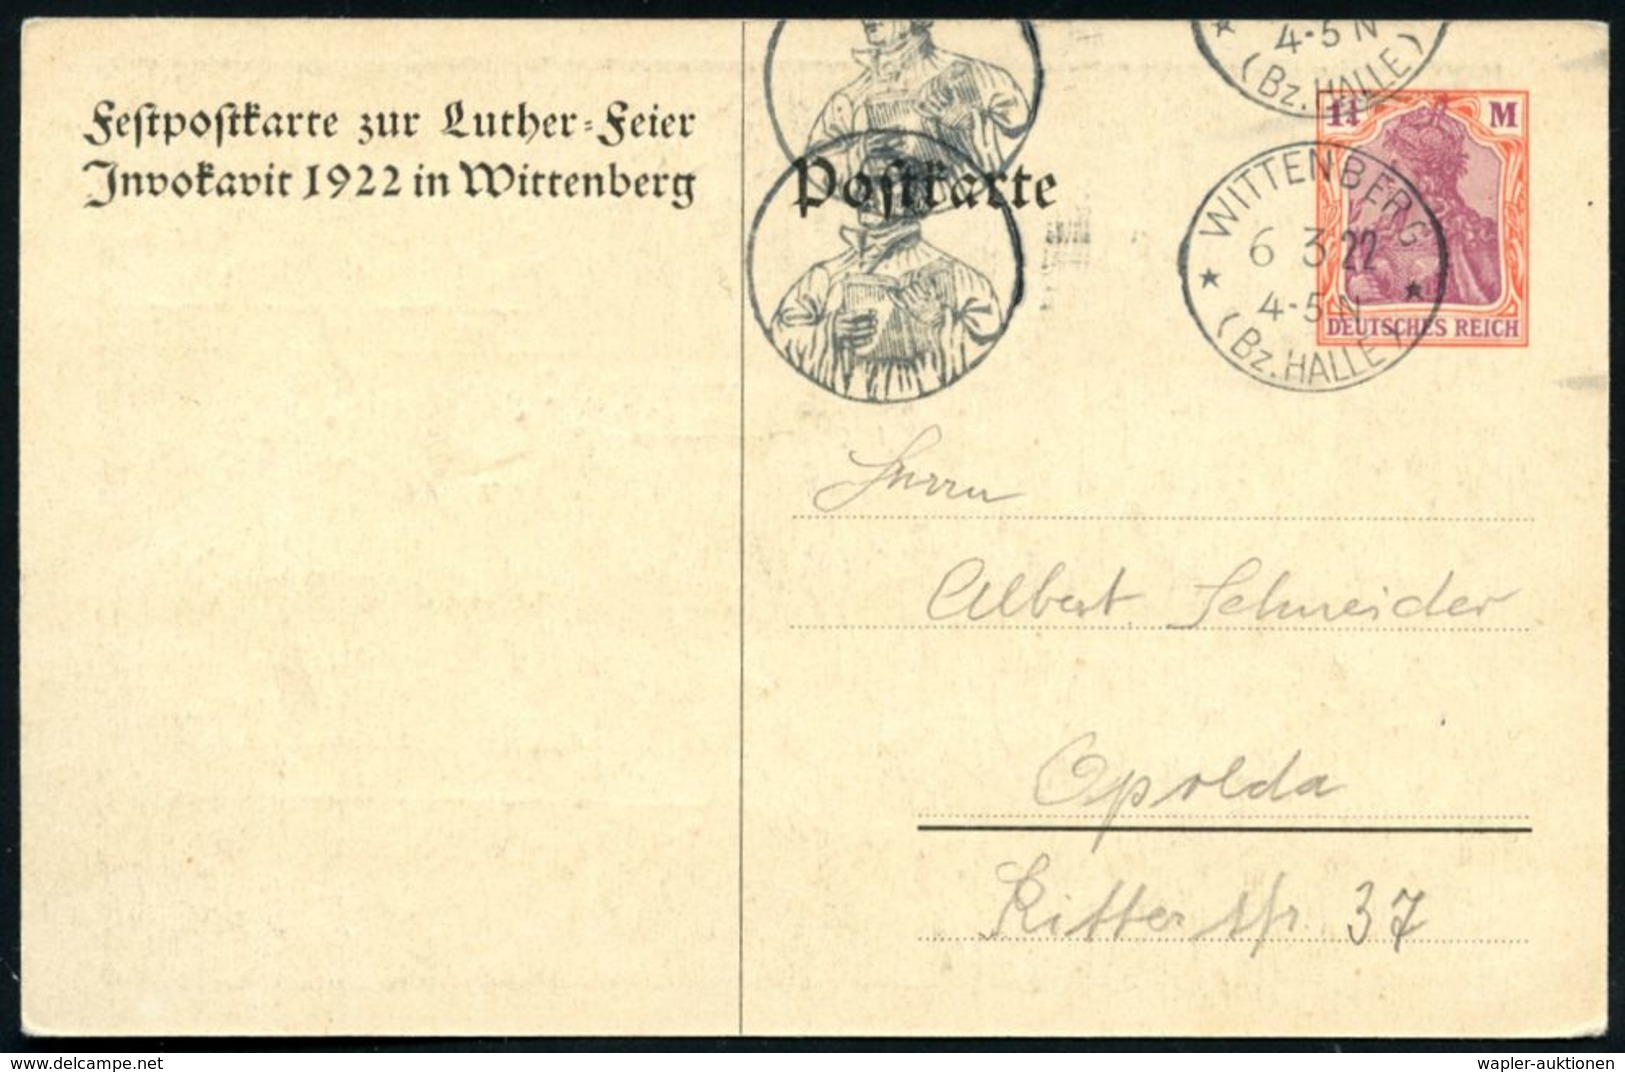 Festpostkarte zur Luther-Feier
Invokavit 1922 in Wittenberg
Postkarte
4-5 N
(Bz. HALLE)
1¼ M
DEUTSCHES REICH
WITTENBERG
6 3 22
4-5 N
(Bz. HALLE)
Herrn
Albert Schneider
Apolda
Ritterstr. 37
delcampe.net
wapler-auktionen